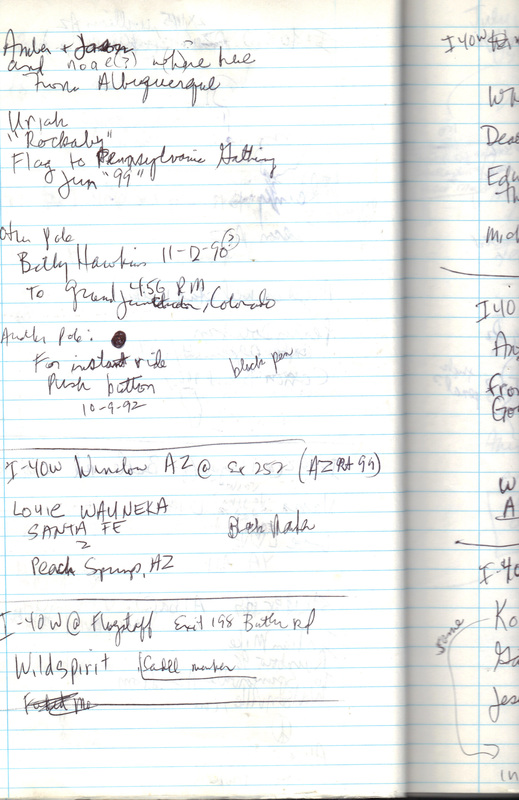 Amber + Jason
and noae(?) where here
From Albuquerque
Uriah
"Rockaby"
Flag to Pennsylvania
Jun "99"
Other Pole
Billy Hawkins 11-12-90 (?)
4:56 PM
To Grand Junction, Colorado
Another Pole:
For instant ride
Push button
black pen
10-9-92
I-40W Winslow AZ @ Ex 252 (AZ Rt 99)
LOUIE WAUNEKA
SANTA FE
2
Peach Springs, AZ
I-40W @ Flagstaff Exit 198 Butler Rd
Wildspirit
I-40W
Wh
Dea
Edu
Th
mid
I-40
An
Fro
Go
W
A
I-40
Ko
same
Ga
Jes
in